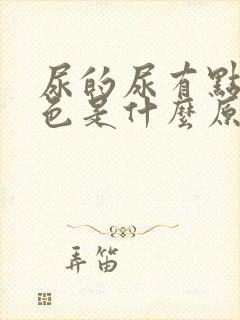 尿的尿有點
色是什麼原
弄笛